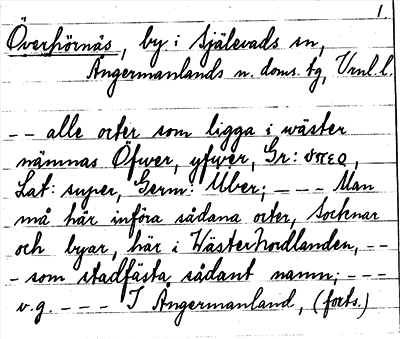 1.
Överhörnäs, by i Själevads sn,
Ångermanlands n. doms. tg, Vnl. l.
-- alle orter som ligga i wäster
nämnas Öfwer, yfwer, Gr: ὑπερ,
Lat: super, Germ: Uber; --- Man
må här införa sådana orter, Socknar
och byar, här i WästerNordlanden, --
- som stadfästa sådant namn; ---
v.g. --- I Ångermanland, (forts.)